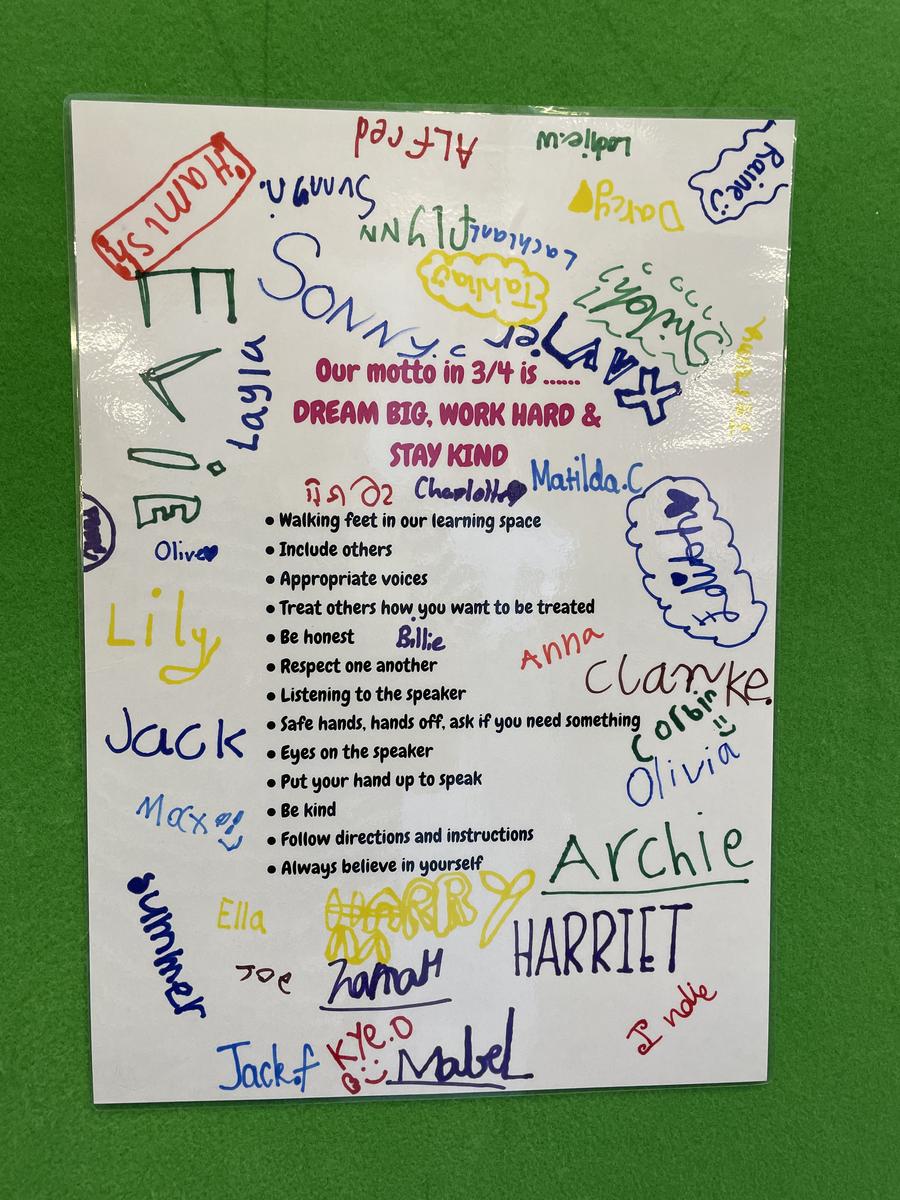 ALFred
Ledjie.W
Raine
Hamish
Sunny.n.
Darcy
Flynn
Lachlan.L
Tahlia
Sonny.c
Shiloh
Xavier
EVIE
Layla
Our motto in 3/4 is ......
DREAM BIG, WORK HARD &
STAY KIND
Charlotte
Matilda.C
• Walking feet in our learning space
• Include others
• Appropriate voices
• Treat others how you want to be treated
• Be honest
• Respect one another
• Listening to the speaker
• Safe hands, hands off, ask if you need something
• Eyes on the speaker
• Put your hand up to speak
• Be kind
• Follow directions and instructions
• Always believe in yourself
Olive
Billie
Lily
Anna
Clarke.
Corbin
Jack
Olivia
Max
Archie
Summer
Ella
HARRY
M
HARRIET
Joe
Zarrah
Indie
Jack.f
Kye.D
Mabel